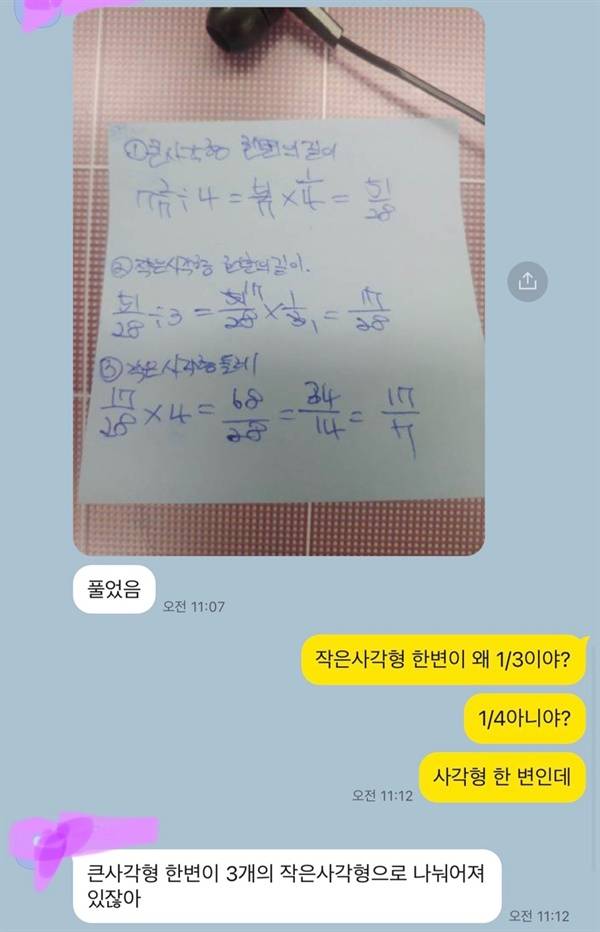 ①큰사각형 한변의 길이
7 2/7 ÷ 4 = 51/7 × 1/4 = 51/28
②작은사각형 한변의길이.
51/28 ÷ 3 = 51 17/28 × 1/3 1 = 17/28
③작은사각형둘레
17/28 × 4 = 68/28 = 34/14 = 17/7
풀었음
오전 11:07
작은사각형 한변이 왜 1/3이야?
1/4아니야?
사각형 한 변인데
오전 11:12
큰사각형 한변이 3개의 작은사각형으로 나눠어져
있잖아
오전 11:12